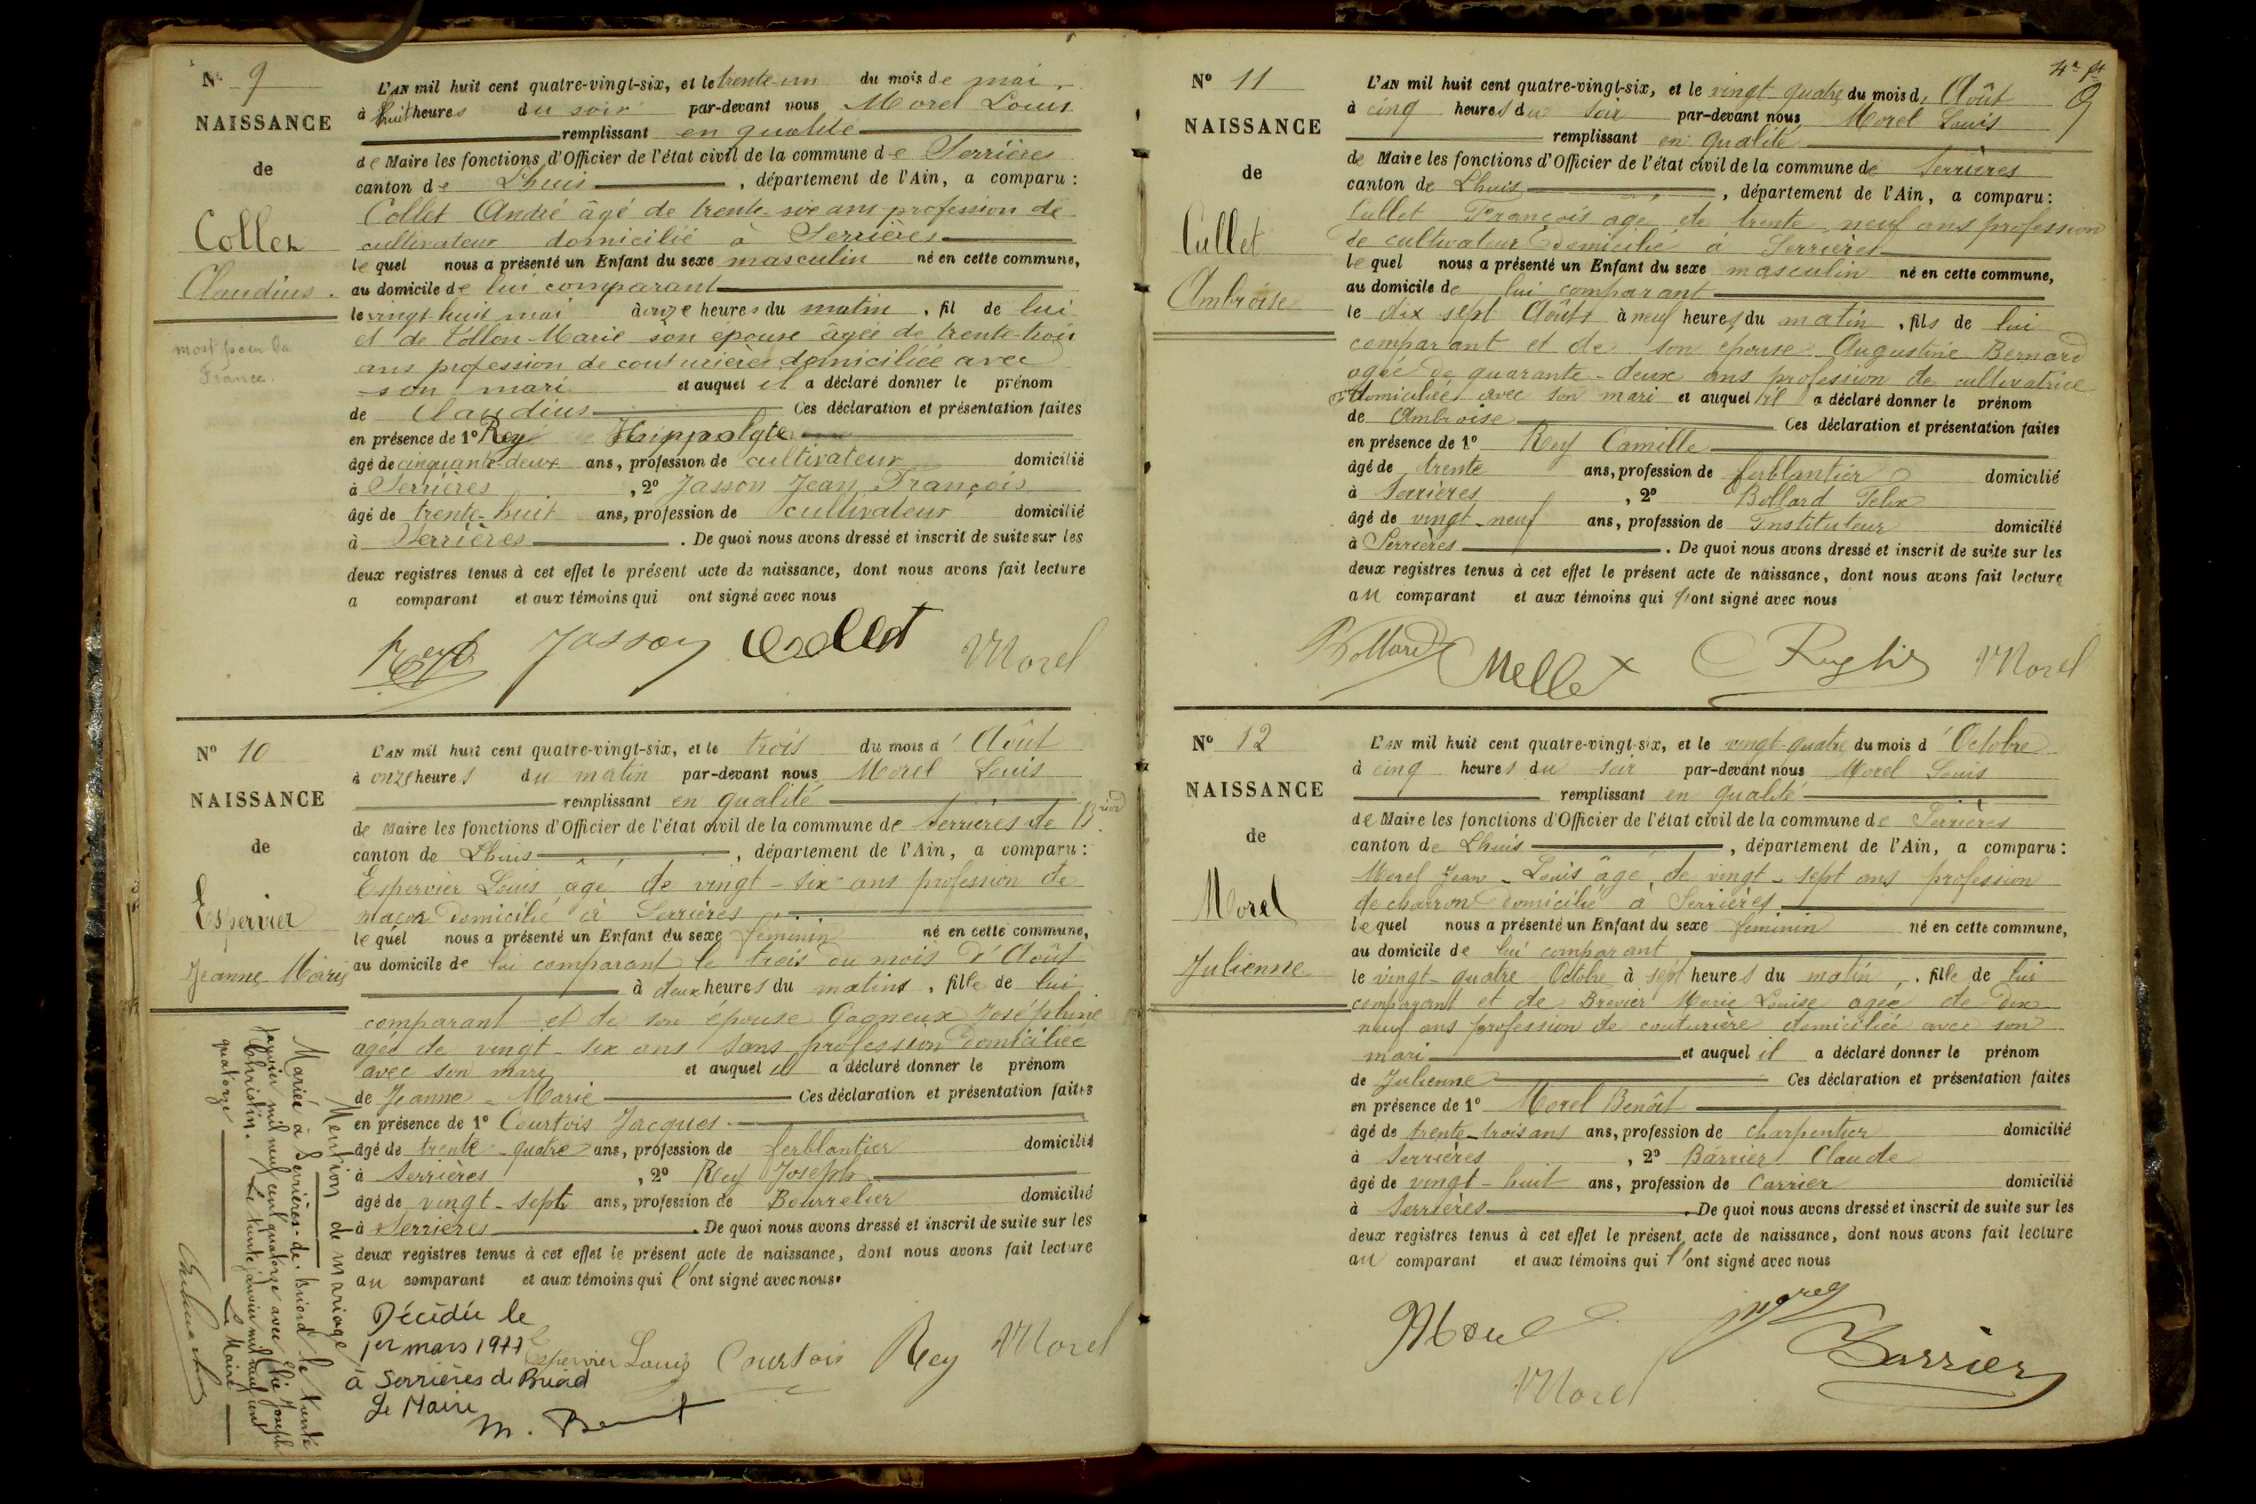 No 9
NAISSANCE
de
Collet
Claudius.
mort pour la
France.
L'AN mil huit cent quatre-vingt-six, et le trente-un du mois de mai,
à huit heures du soir par-devant nous Morel Louis
remplissant en qualité
de Maire les fonctions d'Officier de l'état civil de la commune de Serrières
canton de Lhuis, département de l'Ain, a comparu :
Collet André âgé de trente-six ans profession de
cultivateur domicilié à Serrières
lequel nous a présenté un Enfant du sexe masculin né en cette commune,
au domicile de lui comparant
le vingt huit mai à onze heures du matin, fil de lui
et de Marie son épouse âgée de trente-trois
ans profession de couturière domiciliée avec
son mari et auquel il a déclaré donner le prénom
de Claudius Ces déclaration et présentation faites
en présence de 1º Rey Hippolyte
âgé de cinquante-deux ans, profession de cultivateur domicilié
à Serrières, 2º Jasson Jean François
âgé de trente-huit ans, profession de cultivateur domicilié
à Serrières. De quoi nous avons dressé et inscrit de suite sur les
deux registres tenus à cet effet le présent acte de naissance, dont nous avons fait lecture
a comparant et aux témoins qui ont signé avec nous
Rey Jasson Collet Morel
No 10
NAISSANCE
de
Espervier
Jeanne Marie
Mention de mariage
Mariée à Serrières-de-Briord le trente
janvier mil neuf cent quatorze avec Elie Joseph
Christin. Le trente janvier mil neuf cent
quatorze Le Maire
L'AN mil huit cent quatre-vingt-six, et le trois du mois d'Août
à onze heures du matin par-devant nous Morel Louis
remplissant en qualité
de Maire les fonctions d'Officier de l'état civil de la commune de Serrières de Briord
canton de Lhuis, département de l'Ain, a comparu :
Espervier Louis âgé de vingt-six ans profession de
maçon domicilié à Serrières
lequel nous a présenté un Enfant du sexe féminin né en cette commune,
au domicile de lui comparant le trois du mois d'Août
à deux heures du matin, fille de lui
comparant et de son épouse Gagneux Joséphine
agée de vingt-six ans sans profession domiciliée
avec son mari et auquel il a déclaré donner le prénom
de Jeanne-Marie Ces déclaration et présentation faites
en présence de 1º Courtois Jacques
âgé de trente-quatre ans, profession de ferblantier domicilié
à Serrières, 2º Rey Joseph
âgé de vingt-sept ans, profession de Bourrelier domicilié
à Serrières. De quoi nous avons dressé et inscrit de suite sur les
deux registres tenus à cet effet le présent acte de naissance, dont nous avons fait lecture
au comparant et aux témoins qui l'ont signé avec nous.
Décédée le
1er mars 1977
à Serrières de Briord
Le Maire
Espervier Louis Courtois Rey Morel
4e ft
9
No 11
NAISSANCE
de
Cullet
Ambroise
L'AN mil huit cent quatre-vingt-six, et le vingt-quatre du mois d'Août
à cinq heures du soir par-devant nous Morel Louis
remplissant en qualité
de Maire les fonctions d'Officier de l'état civil de la commune de Serrières
canton de Lhuis, département de l'Ain, a comparu :
Cullet François agé de trente-neuf ans profession
de cultivateur domicilié à Serrières
lequel nous a présenté un Enfant du sexe masculin né en cette commune,
au domicile de lui comparant
le dix sept Août à neuf heures du matin, fils de lui
comparant et de son épouse Augustine Bernard
agée de quarante-deux ans profession de cultivatrice
domiciliée avec son mari et auquel il a déclaré donner le prénom
de Ambroise Ces déclaration et présentation faites
en présence de 1º Rey Camille
âgé de trente ans, profession de ferblantier domicilié
à Serrières, 2º Bollard Félix
âgé de vingt-neuf ans, profession de Instituteur domicilié
à Serrières. De quoi nous avons dressé et inscrit de suite sur les
deux registres tenus à cet effet le présent acte de naissance, dont nous avons fait lecture
au comparant et aux témoins qui l'ont signé avec nous
Bollard Rey Morel
No 12
NAISSANCE
de
Morel
Julienne
L'AN mil huit cent quatre-vingt-six, et le vingt-quatre du mois d'Octobre
à cinq heures du soir par-devant nous Morel Louis
remplissant en qualité
de Maire les fonctions d'Officier de l'état civil de la commune de Serrières
canton de Lhuis, département de l'Ain, a comparu :
Morel Jean-Louis âgé de vingt-sept ans profession
de charron domicilié à Serrières
lequel nous a présenté un Enfant du sexe féminin né en cette commune,
au domicile de lui comparant
le vingt-quatre Octobre à sept heures du matin, fille de lui
comparant et de Brevier Marie Louise agée de dix
neuf ans profession de couturière domiciliée avec son
mari et auquel il a déclaré donner le prénom
de Julienne Ces déclaration et présentation faites
en présence de 1º Morel Benoît
âgé de trente-trois ans ans, profession de charpentier domicilié
à Serrières, 2º Barrier Claude
âgé de vingt-huit ans, profession de Carrier domicilié
à Serrières. De quoi nous avons dressé et inscrit de suite sur les
deux registres tenus à cet effet le présent acte de naissance, dont nous avons fait lecture
au comparant et aux témoins qui l'ont signé avec nous
Morel Morel Barrier
Morel